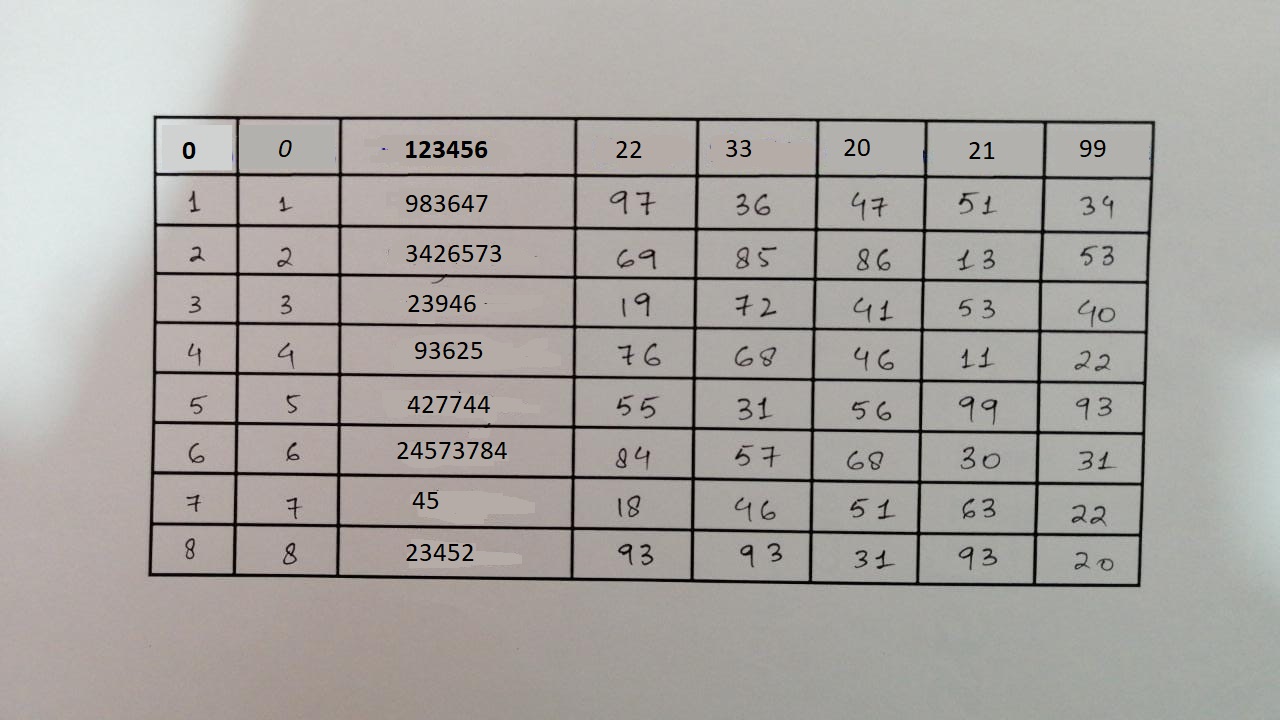 0 0 123456 22 33 20 21 99
1 1 983647 97 36 47 51 34
2 2 3426573 69 85 86 13 53
3 3 23946 19 72 41 53 40
4 4 93625 76 68 46 11 22
5 5 427744 55 31 56 99 93
6 6 24573784 84 57 68 30 31
7 7 45 18 46 51 63 22
8 8 23452 93 93 31 93 20